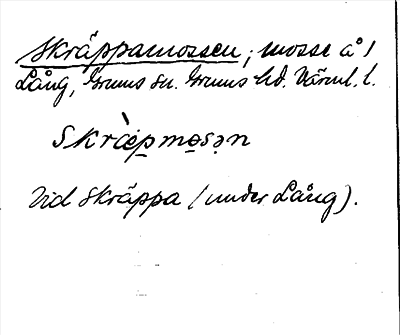 Skräppamossen; mosse å 1
Lång, Grums sn. Grums hd. Värml. l.
skræ̀pmo̠sən
Vid Skräppa (under Lång).